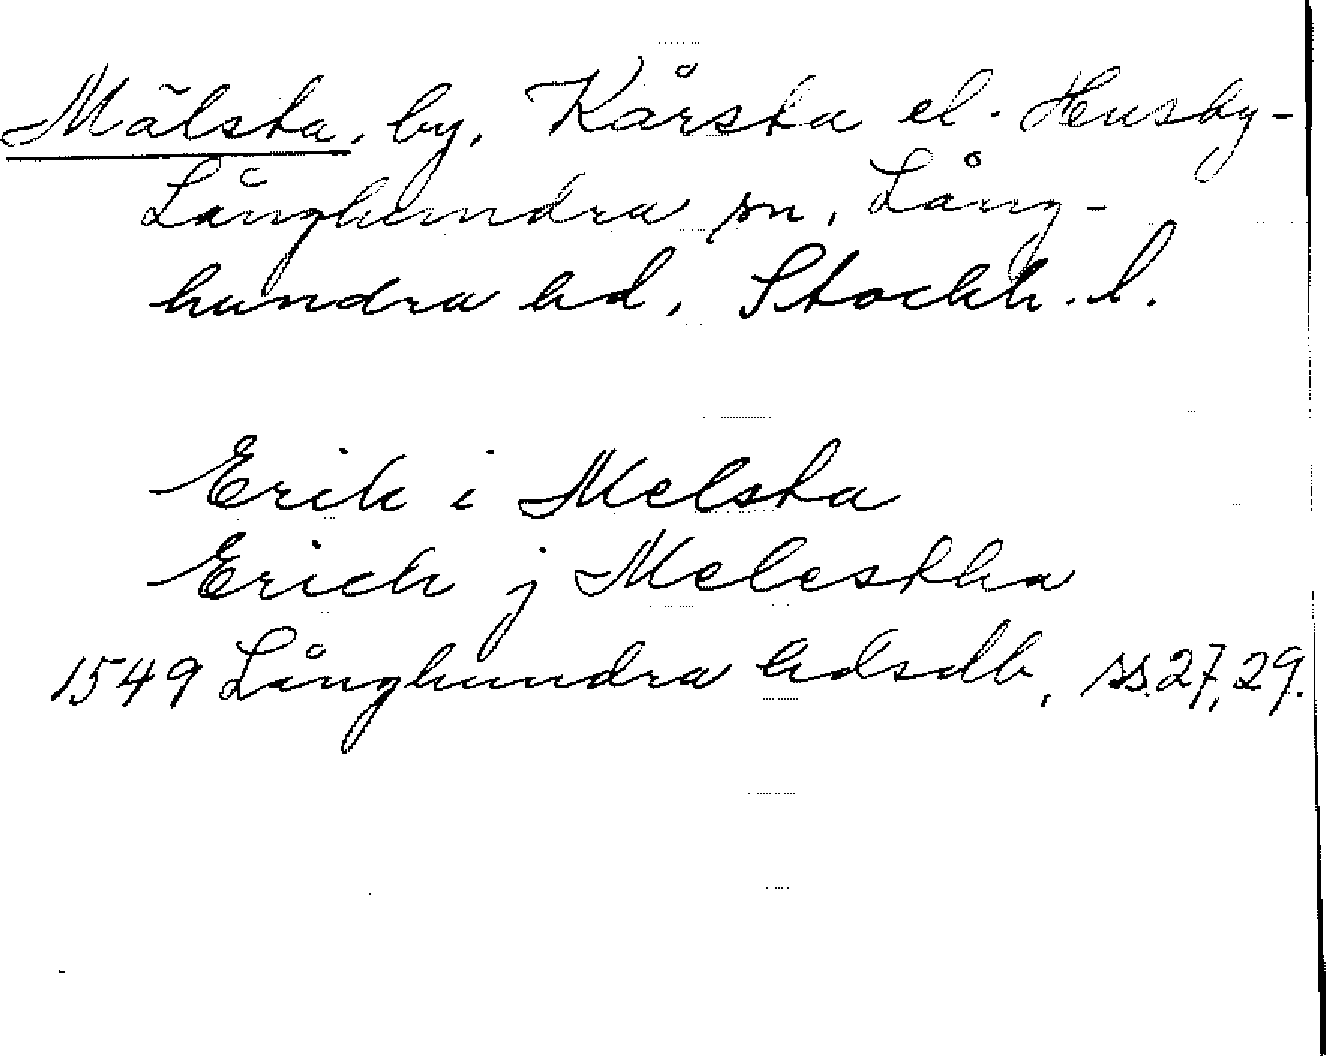 Mälsta, by, Kårsta el. Husby-
Långhundra sn, Lång-
hundra hd, Stockh. l.
Erik i Melsta
Erich j Melestha
1549 Långhundra hdsdb, ss. 27, 29.